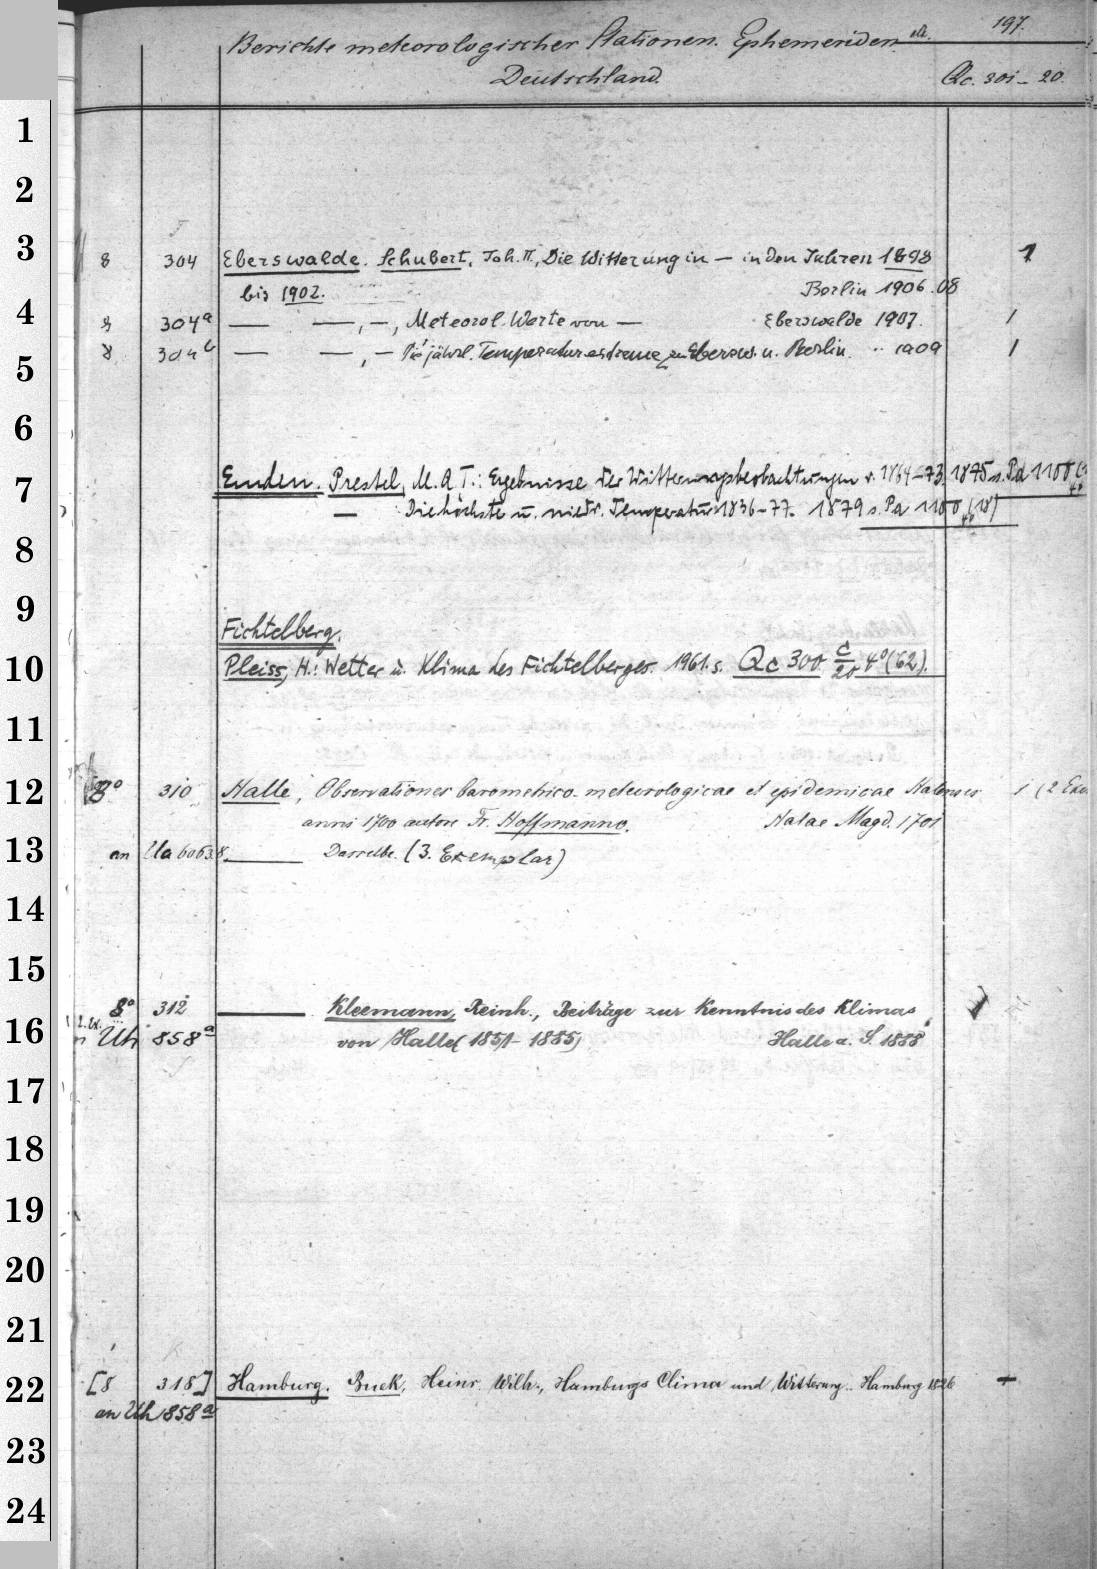 197.
Berichte meteorologischer Stationen. Ephemeriden etc.
Deutschland. Qc. 301-20
1
2
3 8 304 Eberswalde. Schubert, Joh. Die Witterung in — in den Jahren 1898 1
bis 1902. Berlin 1906.08
4 8 304a — —, —, Meteorol. Werte von — Eberswalde 1907. 1
8 304b — —, — Die jährl. Temperaturextreme zu Ebersw. u. Berlin. 1909 1
5
6
7 Emden. Prestel, M. A. T.: Ergebnisse der Witterungsbeobachtungen v. 1864-73. 1875 s. Pd 1100
— Die höchste u. niedr. Temperatur 1836-77. 1879 s. Pd 1100 4° (18)
8
9 Fichtelberg.
10 Pleiss, H.: Wetter u. Klima des Fichtelberges. 1961. s. Qc 300 c/20 4° (62).
11
12 8° 310 Halle, Observationes barometrico-meteorologicae et epidemicae Halenses 1 (2 Exe
anni 1700 autore Fr. Hoffmanno. Halae Magd. 1701
13 an Ua 6063.8. — Dasselbe. (3. Exemplar)
14
15
8° 312 — Kleemann, Reinh., Beiträge zur Kenntnis des Klimas
16 Uh 858a von Halle (1851-1885) Halle a. S. 1888
17
18
19
20
21
22 [8 318] Hamburg. Buek, Heinr. Wilh., Hamburgs Clima und Witterung. Hamburg 1826 —
an Uh 858a
23
24